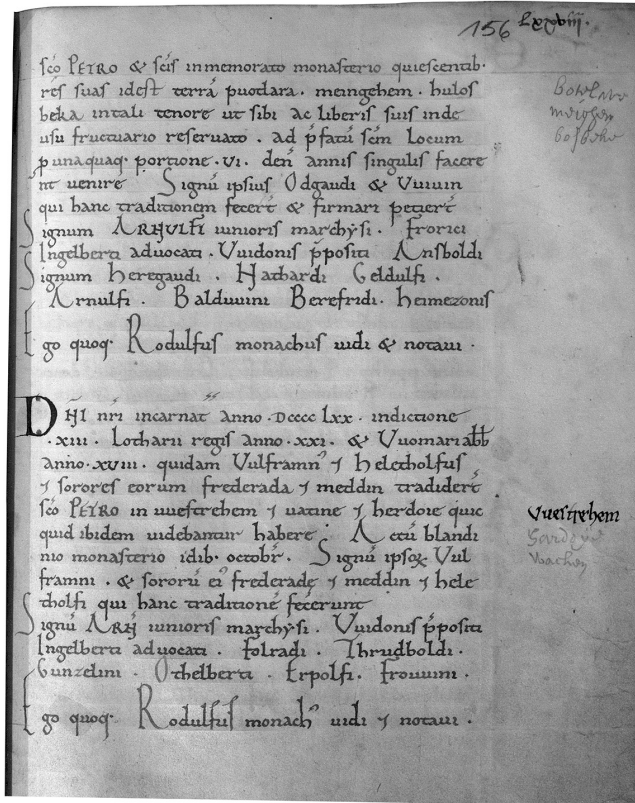 156 Lxxviii.
sc̄o PETRO & sc̄is inmemorato monasterio quiescentib·
res suas idest terrā puotdara. meingehem. hulos
beka intali tenore ut sibi ac liberis suis inde
usu fructuario reseruato. ad p̄fatū sc̄m Locum
p unaquaq· portione ·VI· den̄ annis singulis facere
nt uenire Signū ipsius Odgaudi & Vuiuin
qui hanc traditionem fecer̄t & firmari petier̄t
Signum ARNULFI iunioris marchysi. Frorici
Ingelberti aduocati. Vuidonis p̄positi Ansboldi
Signum heregaudi. Hathardi Geldulfi.
Arnulfi. Balduuini Berefridi. heimezonis
Ego quoq· Rodulfus monachus uidi & notaui.
DN̄I nr̄i incarnat̄ anno ·DCCCC LXX· indictione
·XIII· Lotharii regis anno ·XXI· & Vuomari abb̄
anno ·XVIII· quidam Vulframn⁹ ⁊ heletholfus
⁊ sorores eorum frederada ⁊ meddin tradider̄t
sc̄o PETRO in uuestrehem ⁊ uatine ⁊ herdoie quic
quid ibidem uidebantur habere. Actū blandi
nio monasterio idib· octobr̄. Signū ipsoꝝ Vul
framni. & sororū ei⁹ frederadę ⁊ meddin ⁊ hele
tholfi qui hanc traditionē fecerunt
Signū ARN̄ iunioris marchysi. Vuidonis p̄positi
Ingelberti aduocati. Folradi. Thrudboldi.
Gunzelini. Othelberti. Erpolfi. Frouuini.
Ego quoq· Rodulfus monach⁹ uidi ⁊ notaui.
Vuestrehem